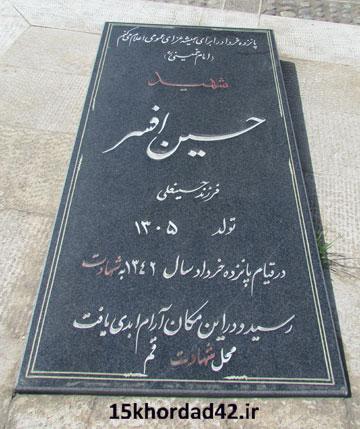 پانزده خرداد را برای همیشه عزای عمومی اعلام می‌کنم
(امام خمینی ره)
شهید
حسین افسر
فرزند حسینعلی
تولد ۱۳۰۵
در قیام پانزده خرداد سال ۱۳۴۲ به شهادت
رسید و در این مکان آرام ابدی یافت
محل شهادت قم
15khordad42.ir